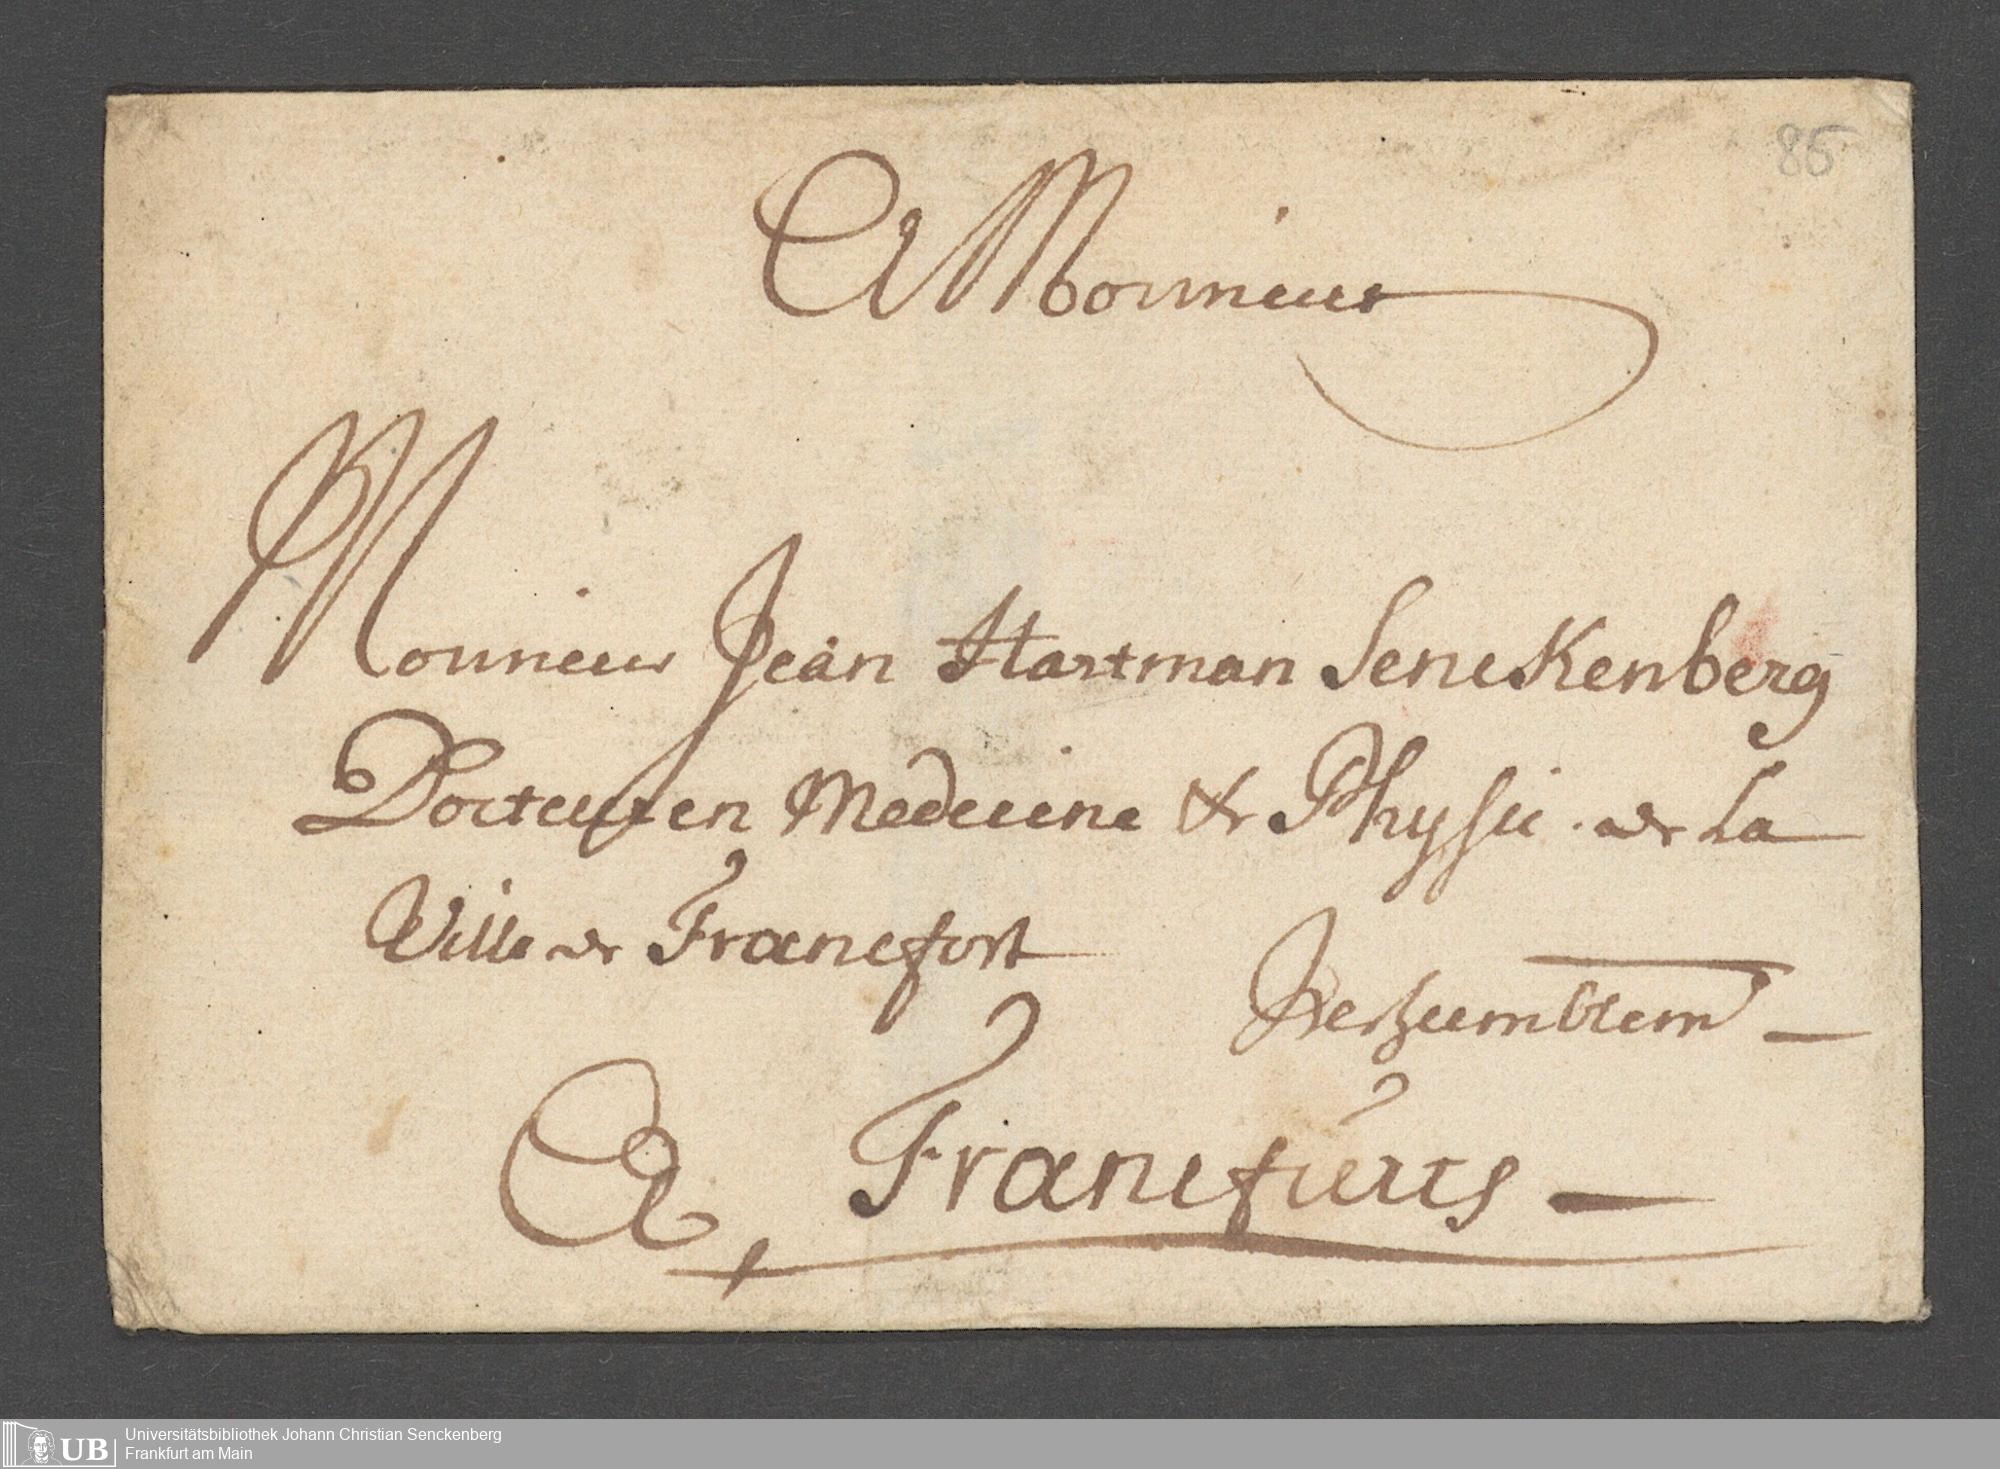 85
A Monsieur
Monsieur Jean Hartman Senckenberg
Docteur en Medecine & Physic. de La
Ville de Francfort
A Francfurts
Universitätsbibliothek Johann Christian Senckenberg
UB
Frankfurt am Main